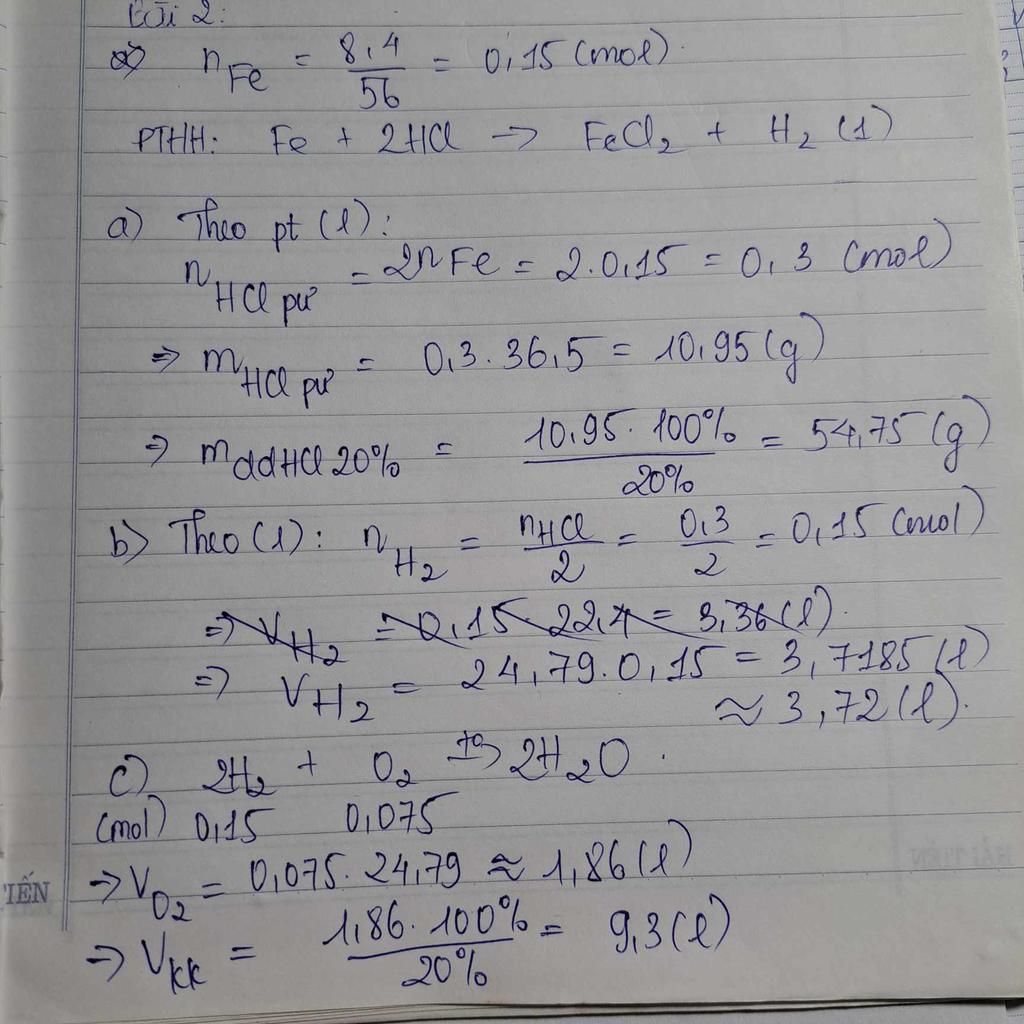 Bài 2:
n Fe = 8,4/56 = 0,15 (mol).
PTHH: Fe + 2HCl → FeCl2 + H2 (1)
a) Theo pt (1):
n HCl pư = 2nFe = 2.0,15 = 0,3 (mol)
⇒ m HCl pư = 0,3.36,5 = 10,95 (g)
⇒ m ddHCl 20% = 10,95.100%/20% = 54,75 (g)
b) Theo (1): n H2 = nHCl/2 = 0,3/2 = 0,15 (mol)
⇒ V H2 = 0,15.22,4 = 3,36 (l).
⇒ V H2 = 24,79.0,15 = 3,7185 (l)
≈ 3,72 (l).
c) 2H2 + O2 t°→ 2H2O.
(mol) 0,15 0,075
⇒ V O2 = 0,075.24,79 ≈ 1,86 (l)
⇒ V KK = 1,86.100%/20% = 9,3 (l)
TIẾN
HẢI TIẾN